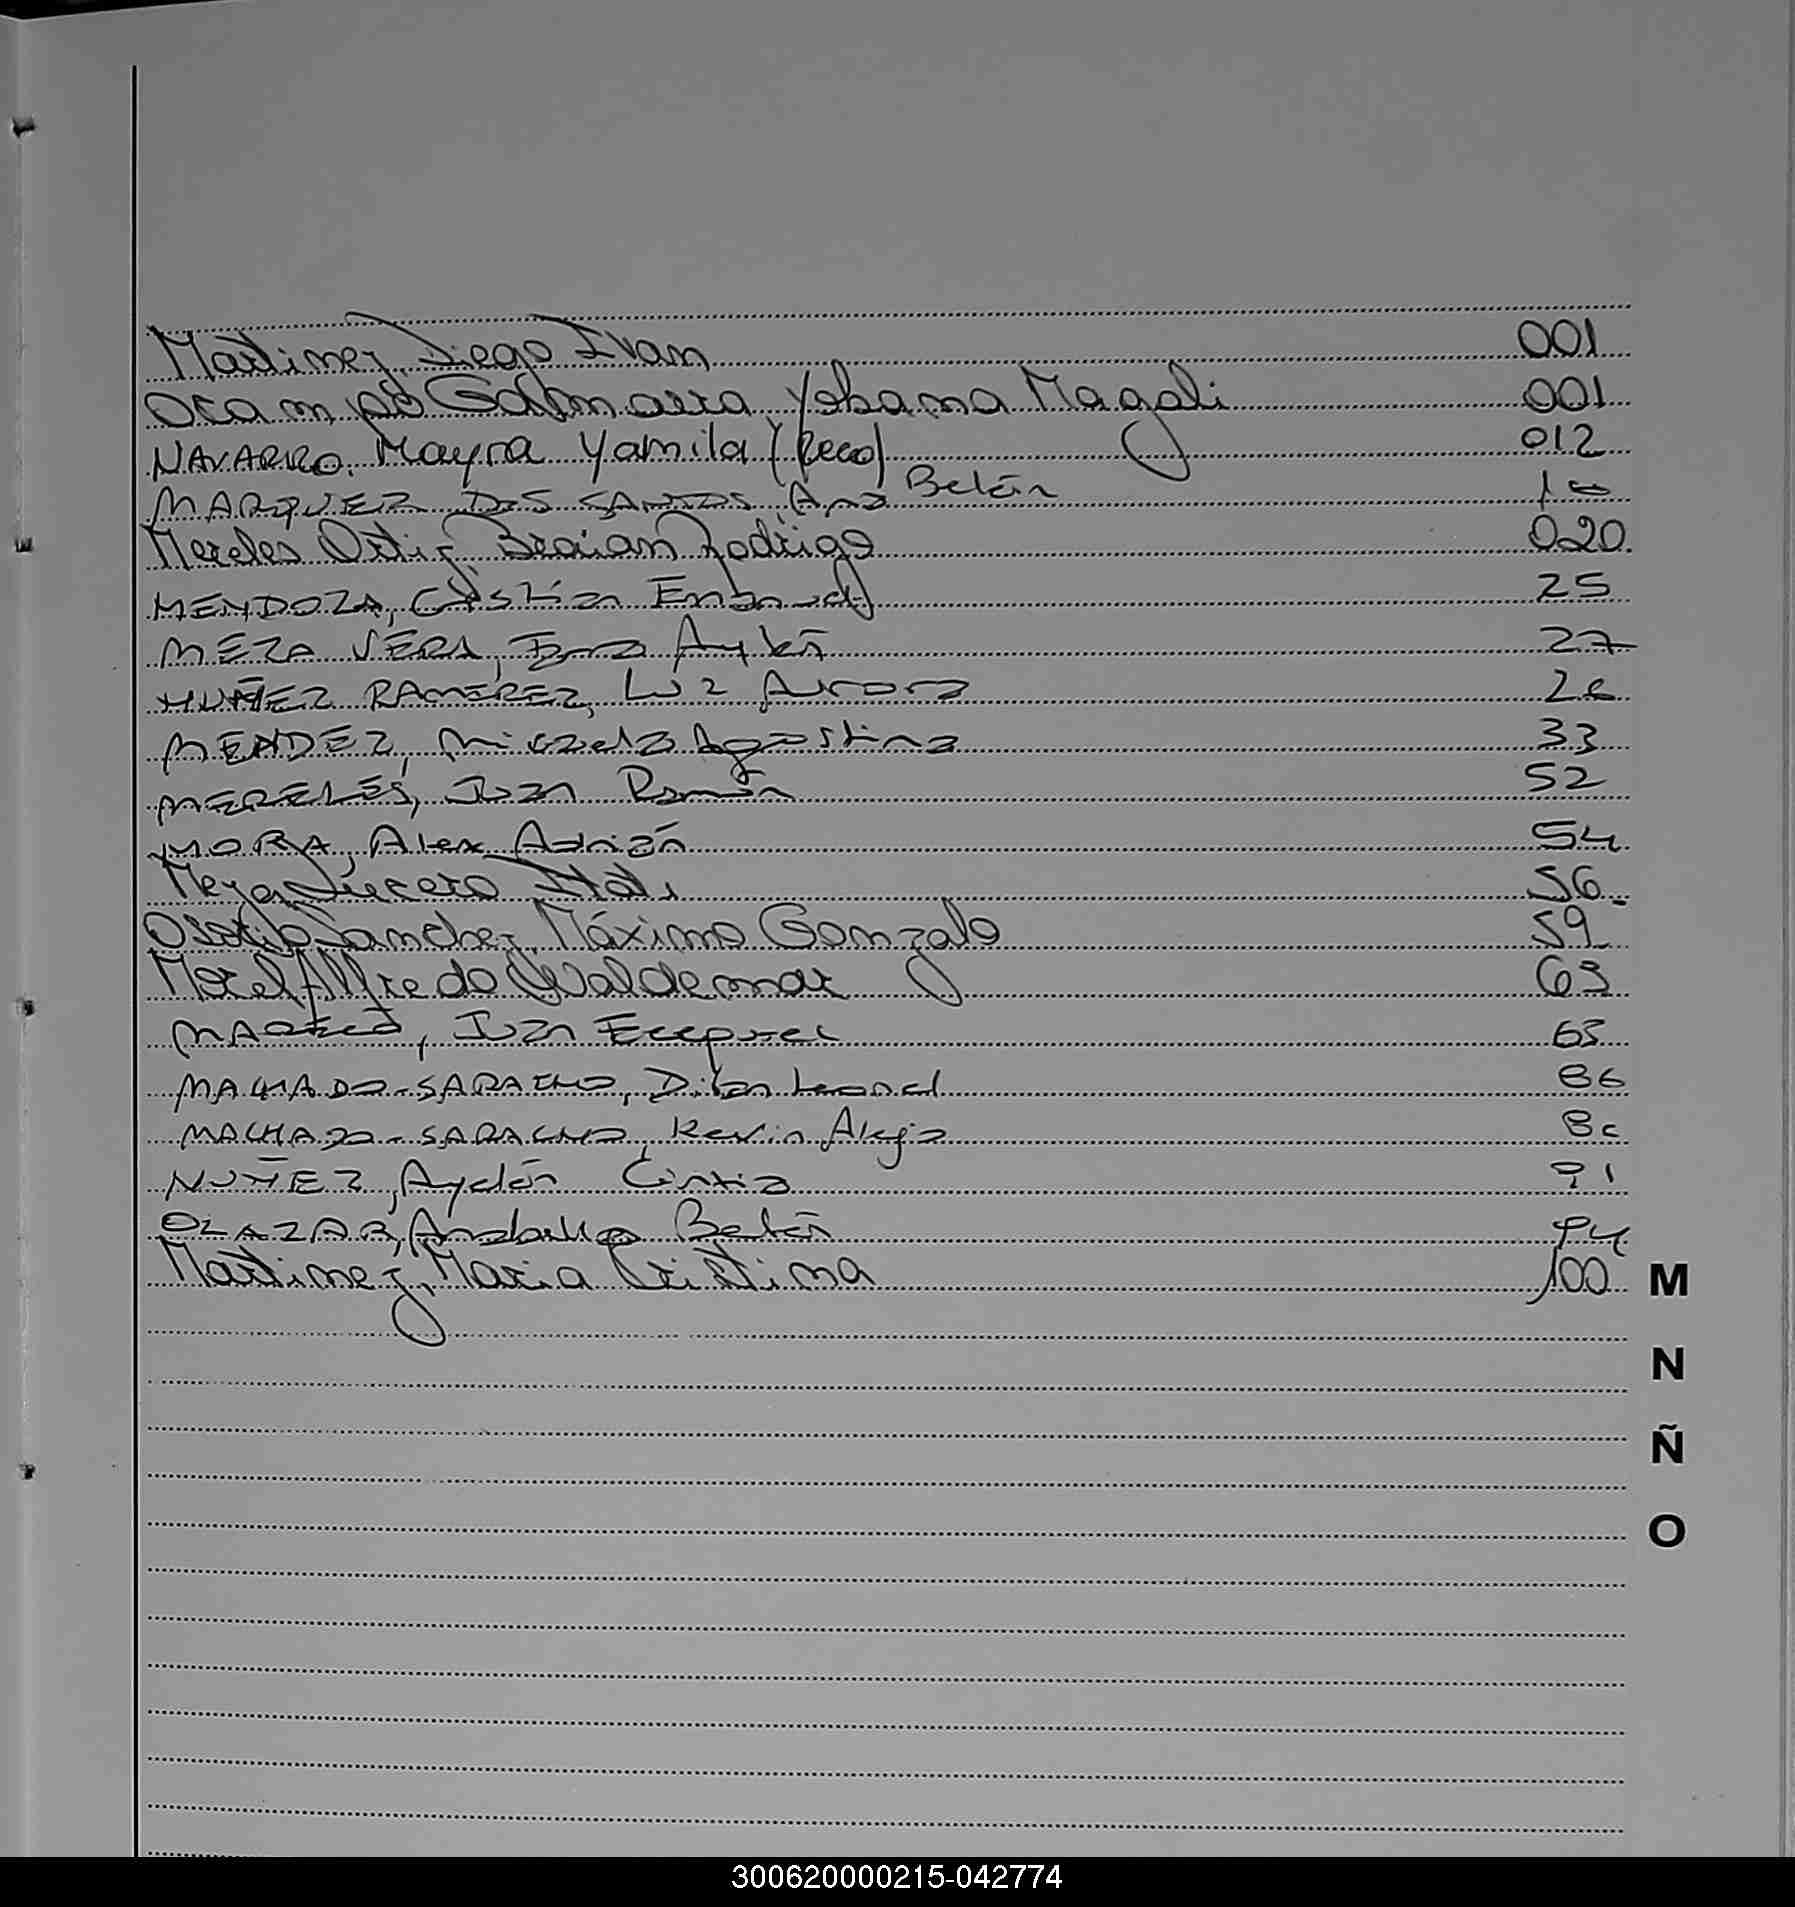 Martinez, Diego Ivan 001
Ocampo Galmarra, Yohana Magali 001
NAVARRO, Mayra Yamila (Reco) 012
MARQUEZ DOS SANTOS, Ana Belén
Mereles Ortiz, Braian Rodrigo 020
MENDOZA, Cristian Emanuel 25
MEZA VERA, Aylén 27
NUÑEZ RAMIREZ, Luz Aurora
MENDEZ, Micaela Agostina 33
MERELES, Juan Ramón 52
MORA, Alex Adrián 54
Meza Lucero 56
Sanchez, Máximo Gonzalo 59
Morel, Alfredo Waldemar 63
Juan Ecequiel 63
MACHADO-SARACHO, Dilan Leonel 86
MACHADO-SARACHO, Kevin Alejo
NUÑEZ, Aydén Cintia 91
OLAZAR, Anabella Belén 94
Martinez, Maria Cristina 100
M
N
Ñ
O
300620000215-042774